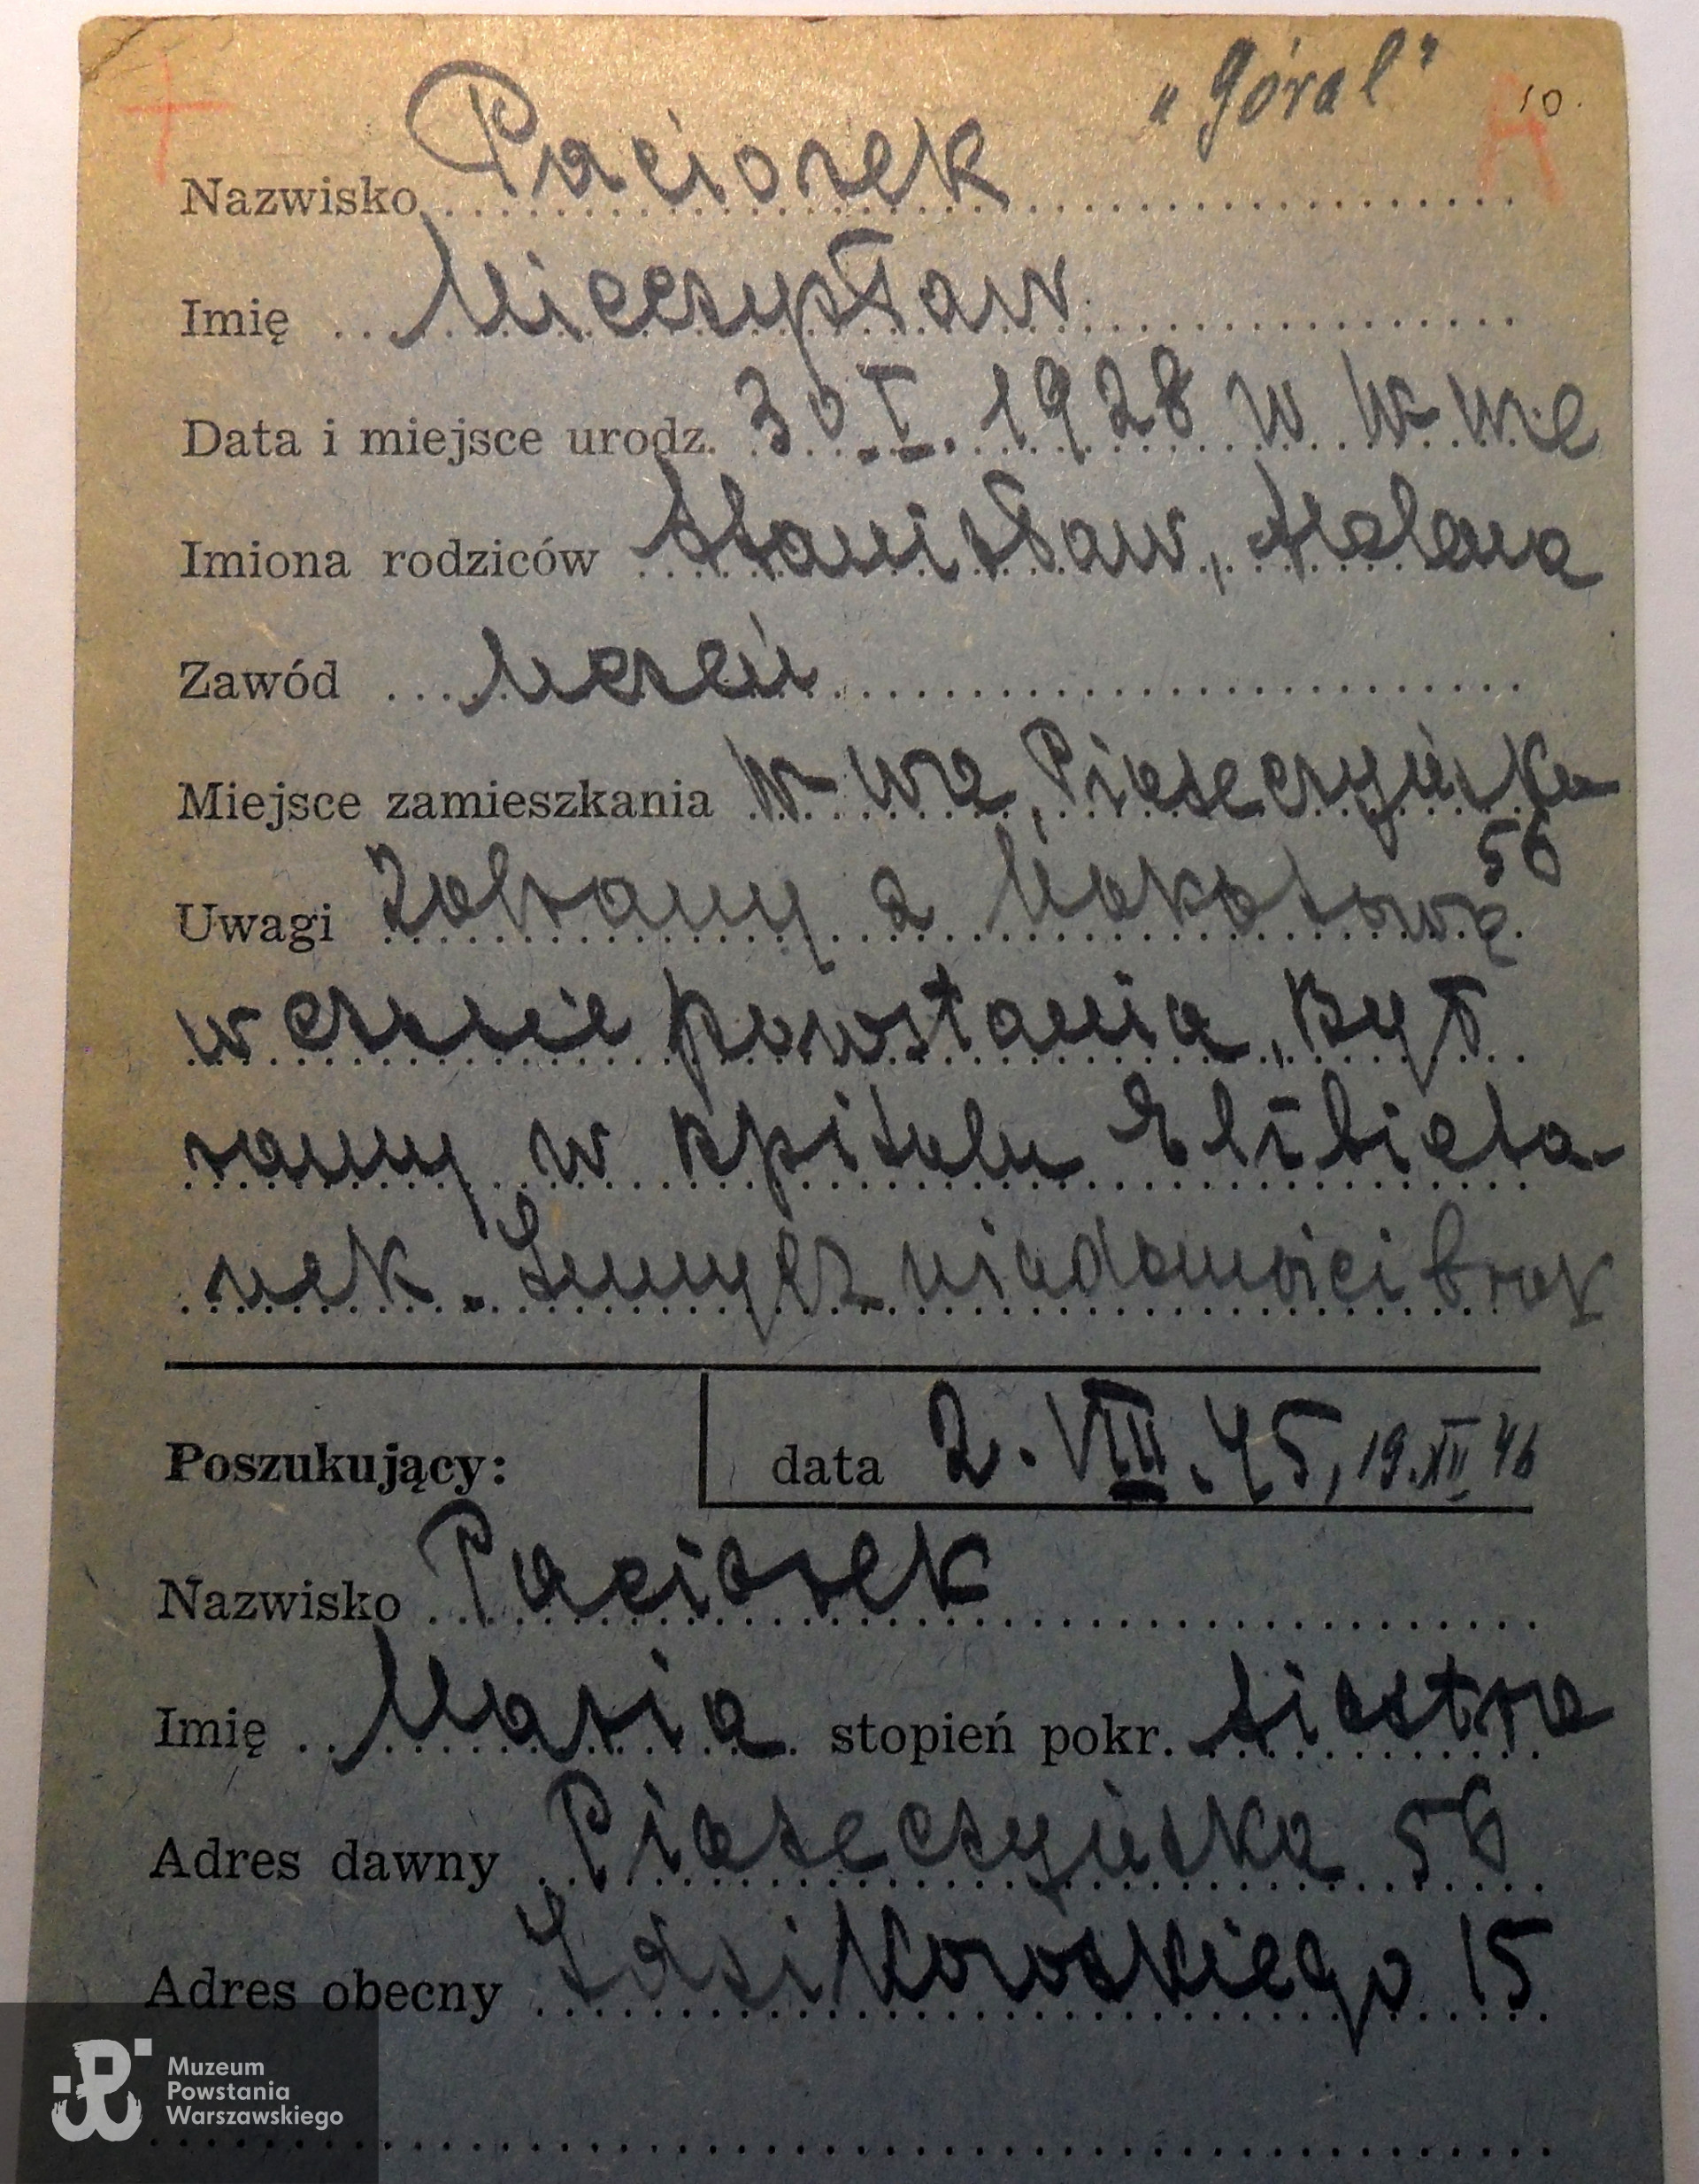 „Góral”
10.
Nazwisko Paciorek
Imię Mieczysław
Data i miejsce urodz. 30.I.1928 w W-wie
Imiona rodziców Stanisław, Helena
Zawód Uczeń
Miejsce zamieszkania W-wa, Piaseczyńska
56
Uwagi Zabrany z Mokotowa
w czasie powstania, Był
ranny w szpitalu Elżbieta-
nek. Innych wiadomości brak
Poszukujący: data 2.VIII.45, 19.XII 46
Nazwisko Paciorek
Imię Maria stopień pokr. siostra
Adres dawny Piaseczyńska 56
Adres obecny Idzikowskiego 15
Muzeum
Powstania
Warszawskiego